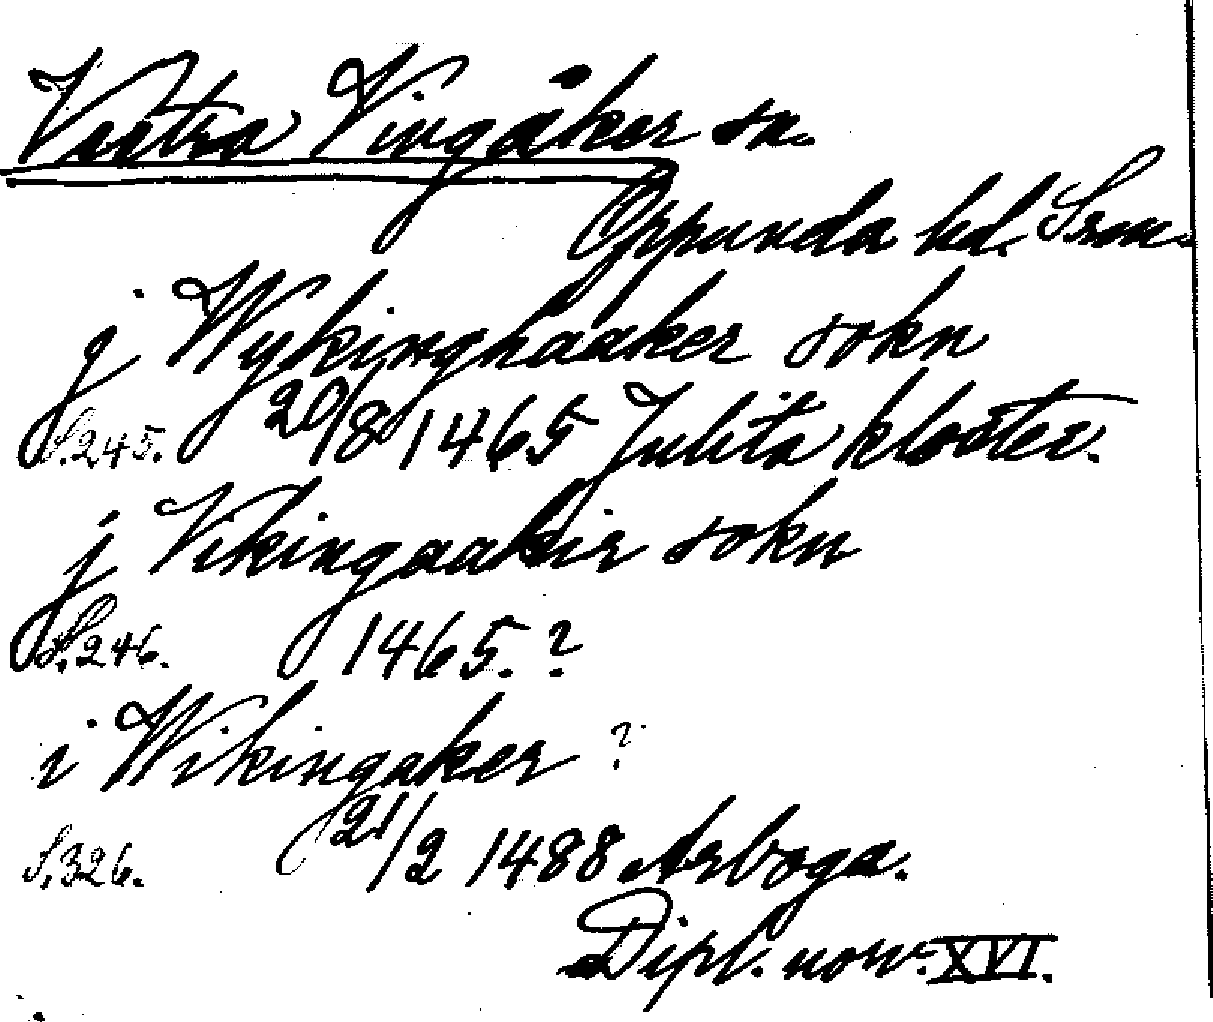 Västra Vingåker sn.
Oppunda hd. Srm.
j Wykinghaaker sokn
S. 245. 20/8 1465 Julita kloster.
j Vikingaakir sokn
S. 246. 1465. ?
i Wikingaker ?
S. 326. 21/2 1488 Arboga.
Dipl. norv. XVI.